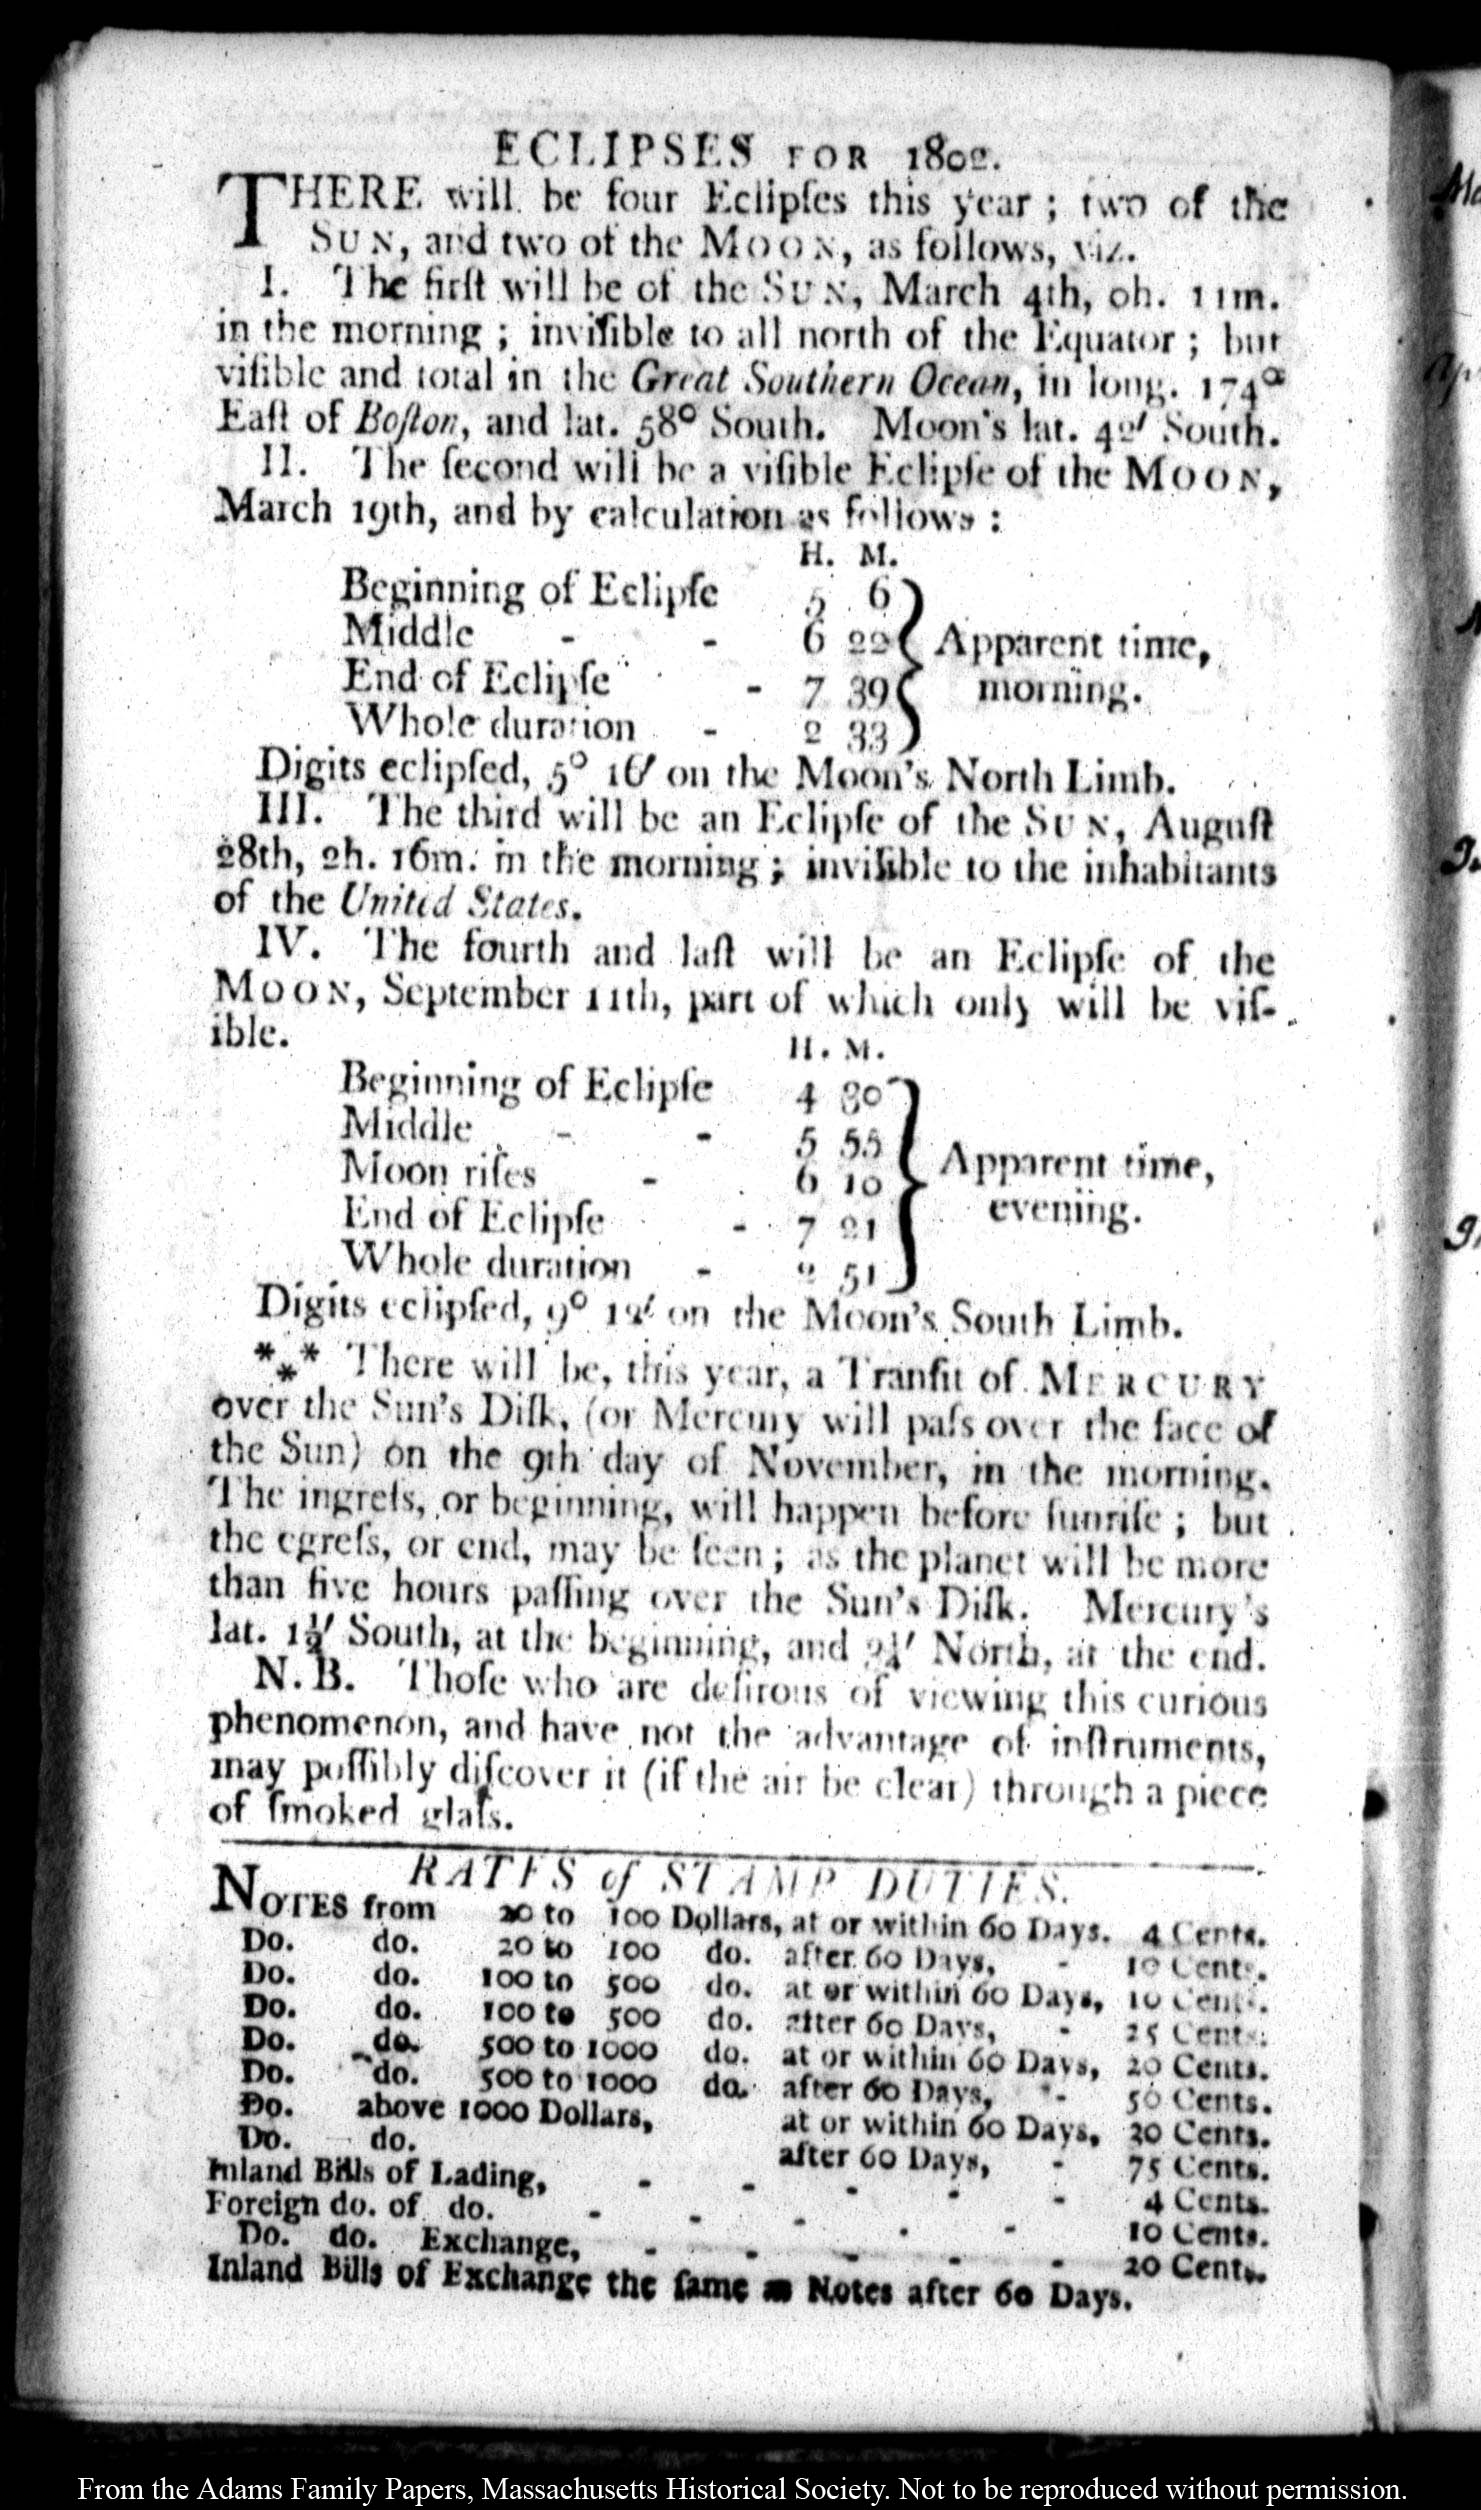 ECLIPSES FOR 1802.
THERE will be four Eclipſes this year; two of the
SUN, and two of the MOON, as follows, viz.
I. The firſt will be of the SUN, March 4th, 0h. 11m.
in the morning; inviſible to all north of the Equator; but
viſible and total in the Great Southern Ocean, in long. 174°
Eaſt of Boſton, and lat. 58° South. Moon's lat. 42′ South.
II. The ſecond will be a viſible Eclipſe of the MOON,
March 19th, and by calculation as follows:
H. M.
Beginning of Eclipſe 5 6
Middle - - 6 22 Apparent time,
End of Eclipſe - 7 39 morning.
Whole duration - 2 33
Digits eclipſed, 5° 16′ on the Moon's North Limb.
III. The third will be an Eclipſe of the SUN, Auguſt
28th, 2h. 16m. in the morning; inviſible to the inhabitants
of the United States.
IV. The fourth and laſt will be an Eclipſe of the
MOON, September 11th, part of which only will be viſ-
ible.
H. M.
Beginning of Eclipſe 4 30
Middle - - 5 55
Moon riſes - 6 10 Apparent time,
End of Eclipſe - 7 21 evening.
Whole duration - 2 51
Digits eclipſed, 9° 12′ on the Moon's South Limb.
*⁎* There will be, this year, a Tranſit of MERCURY
over the Sun's Diſk, (or Mercury will paſs over the face of
the Sun) on the 9th day of November, in the morning.
The ingreſs, or beginning, will happen before ſunriſe; but
the egreſs, or end, may be ſeen; as the planet will be more
than five hours paſſing over the Sun's Diſk. Mercury's
lat. 1½′ South, at the beginning, and North, at the end.
N. B. Thoſe who are deſirous of viewing this curious
phenomenon, and have not the advantage of inſtruments,
may poſſibly diſcover it (if the air be clear) through a piece
of ſmoked glaſs.
RATES of STAMP DUTIES.
NOTES from 20 to 100 Dollars, at or within 60 Days. 4 Cents.
Do. do. 20 to 100 do. after 60 Days, - 10 Cents.
Do. do. 100 to 500 do. at or within 60 Days, 10 Cents.
Do. do. 100 to 500 do. after 60 Days, - 25 Cents.
Do. do. 500 to 1000 do. at or within 60 Days, 20 Cents.
Do. do. 500 to 1000 do. after 60 Days, - 50 Cents.
Do. above 1000 Dollars, at or within 60 Days, 30 Cents.
Do. do. after 60 Days, - 75 Cents.
Inland Bills of Lading, - - - - - 4 Cents.
Foreign do. of do. - - - - - 10 Cents.
Do. do. Exchange, - - - - - 20 Cents.
Inland Bills of Exchange the ſame as Notes after 60 Days.
From the Adams Family Papers, Massachusetts Historical Society. Not to be reproduced without permission.